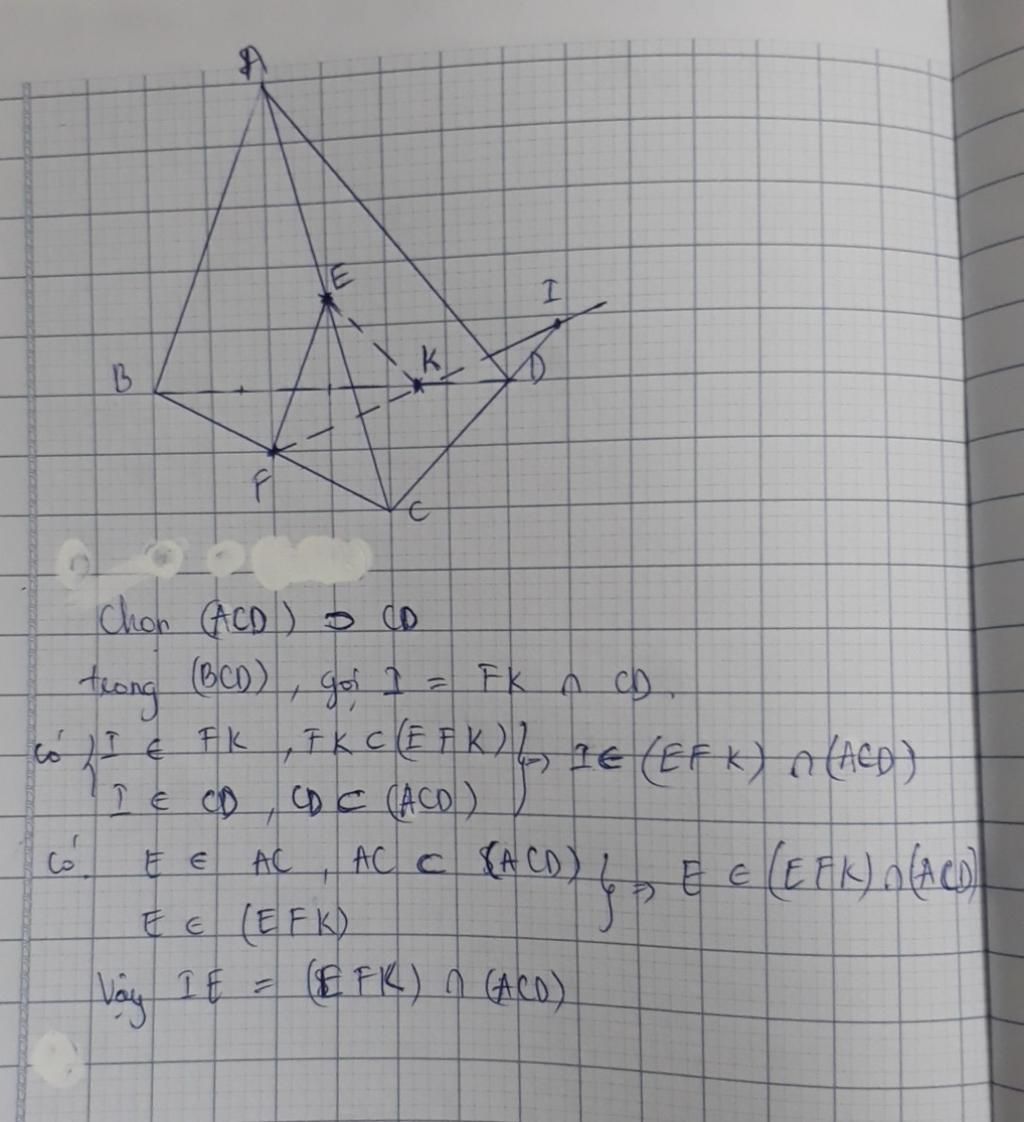 A
E
I
B
K
D
F
C
Chọn (ACD) ⊃ CD
trong (BCD), gọi I = FK ∩ CD.
có { I ∈ FK, FK ⊂ (EFK) } => I ∈ (EFK) ∩ (ACD)
I ∈ CD, CD ⊂ (ACD)
có. E ∈ AC, AC ⊂ (ACD) } => E ∈ (EFK) ∩ (ACD)
E ∈ (EFK)
Vậy IE = (EFK) ∩ (ACD)